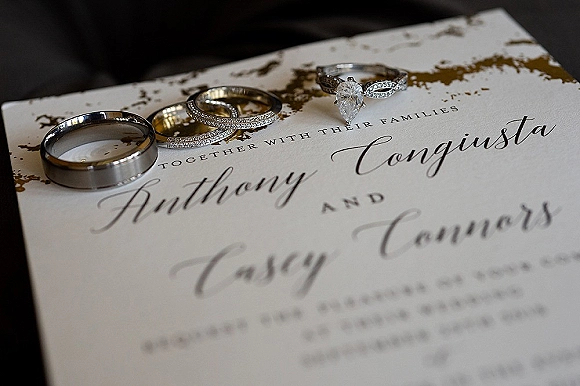 TOGETHER WITH THEIR FAMILIES
Anthony Congiusta
AND
Casey Connors
REQUEST THE PLEASURE OF YOUR COM
AT THEIR WEDDING